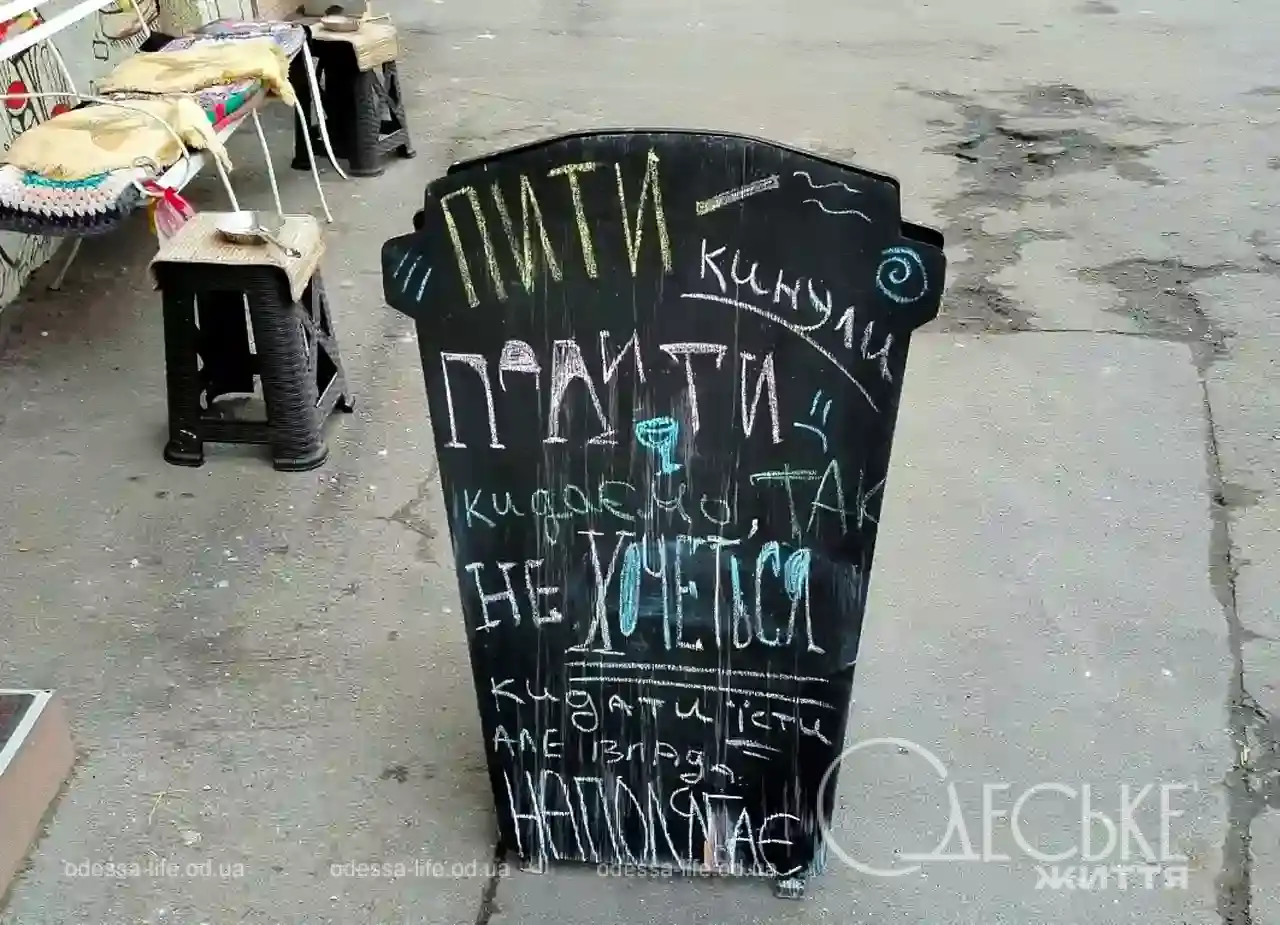 ПИТИ —
КИНУЛИ
ПАЛИТИ
КИДАЄМО, ТАК
НЕ ХОЧЕТЬСЯ
КИДАТИ ЇСТИ
АЛЕ ВЛАДА
НАПОЛЯГАЄ
ОДЕСЬКЕ
ЖИТТЯ
odessa-life.od.ua odessa-life.od.ua odessa-life.od.ua